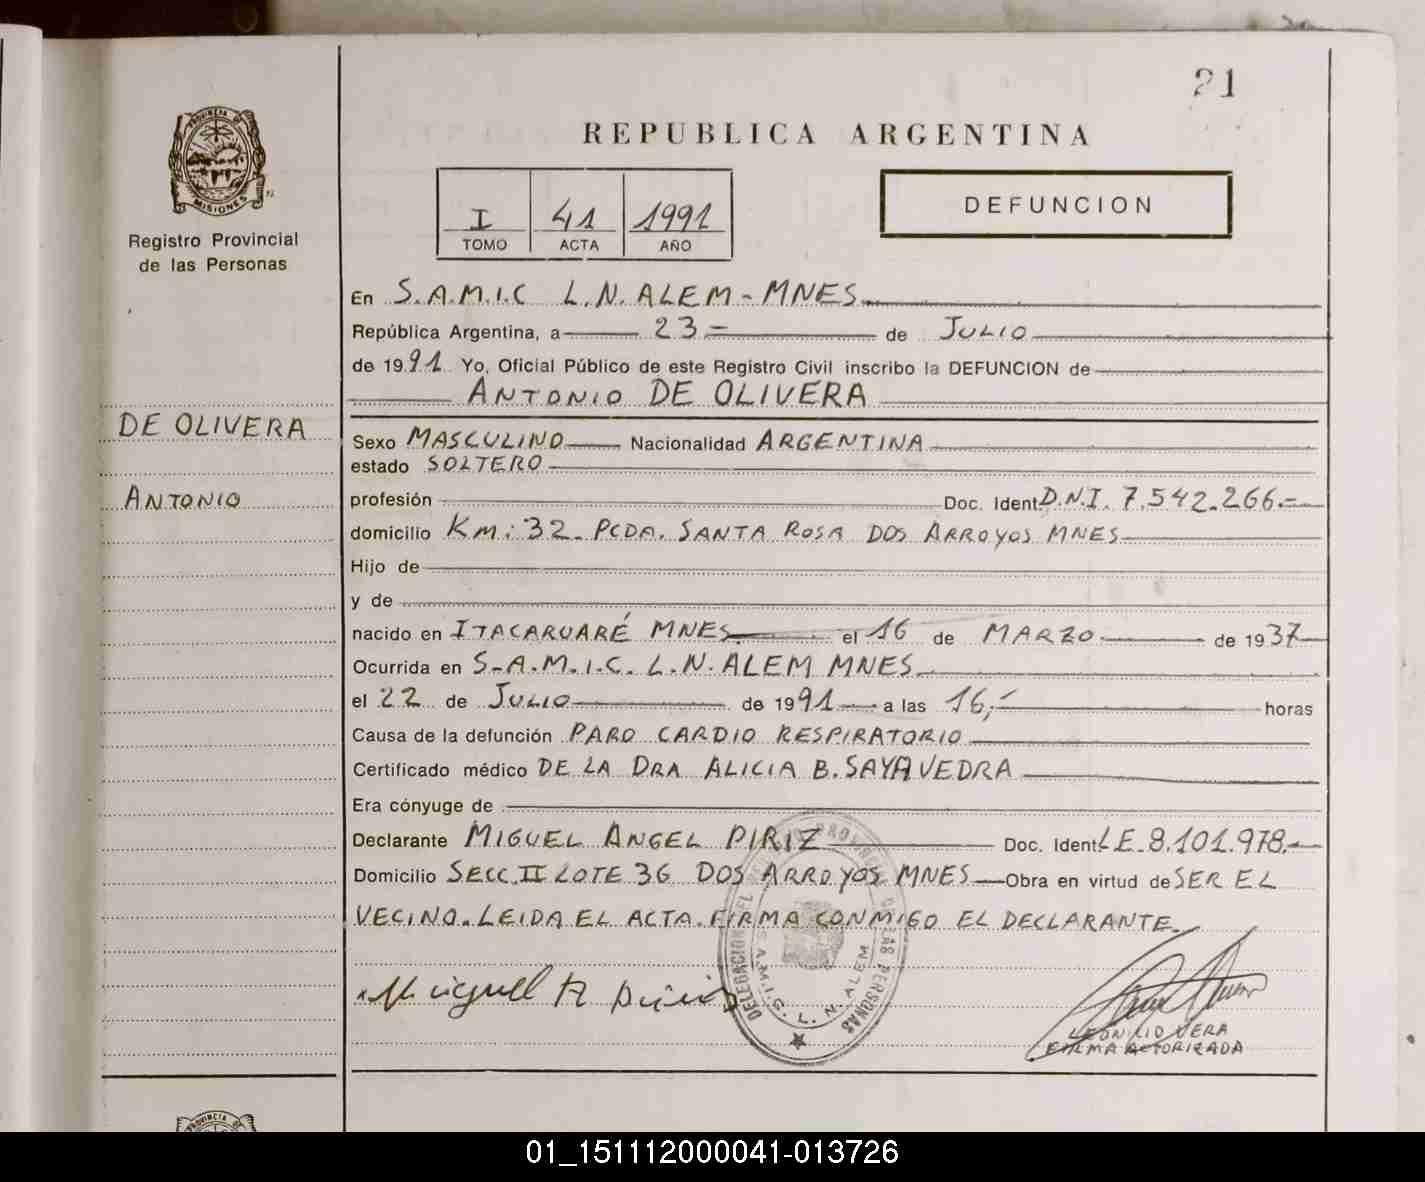 21
REPUBLICA ARGENTINA
PROVINCIA DE
MISIONES
Registro Provincial
de las Personas
I 41 1991
TOMO ACTA AÑO
DEFUNCION
En S.A.M.I.C L.N.ALEM-MNES
República Argentina, a 23- de JULIO
de 1991 Yo, Oficial Público de este Registro Civil inscribo la DEFUNCION de
ANTONIO DE OLIVERA
DE OLIVERA
ANTONIO
Sexo MASCULINO Nacionalidad ARGENTINA
estado SOLTERO
profesión Doc. Ident. D.N.I. 7.542.266.-
domicilio Km: 32. PCDA. SANTA ROSA DOS ARROYOS MNES
Hijo de
y de
nacido en ITACARUARÉ MNES. el 16 de MARZO de 1937
Ocurrida en S-A.M.I.C. L.N. ALEM MNES
el 22 de JULIO de 1991 a las 16,- horas
Causa de la defunción PARO CARDIO RESPIRATORIO
Certificado médico DE LA DRA ALICIA B. SAYAVEDRA
Era cónyuge de
Declarante MIGUEL ANGEL PIRIZ Doc. Ident. L.E. 8.101.978.-
Domicilio SECC. II LOTE 36 DOS ARROYOS MNES Obra en virtud de SER EL
VECINO. LEIDA EL ACTA. FIRMA CONMIGO EL DECLARANTE.
Miguel A Piriz
DELEGACION DEL REGISTRO PROVINCIAL DE LAS PERSONAS
S.A.M.I.C. L. N. ALEM
LEONCIO VERA
FIRMA AUTORIZADA
PROVINCIA DE
01_151112000041-013726